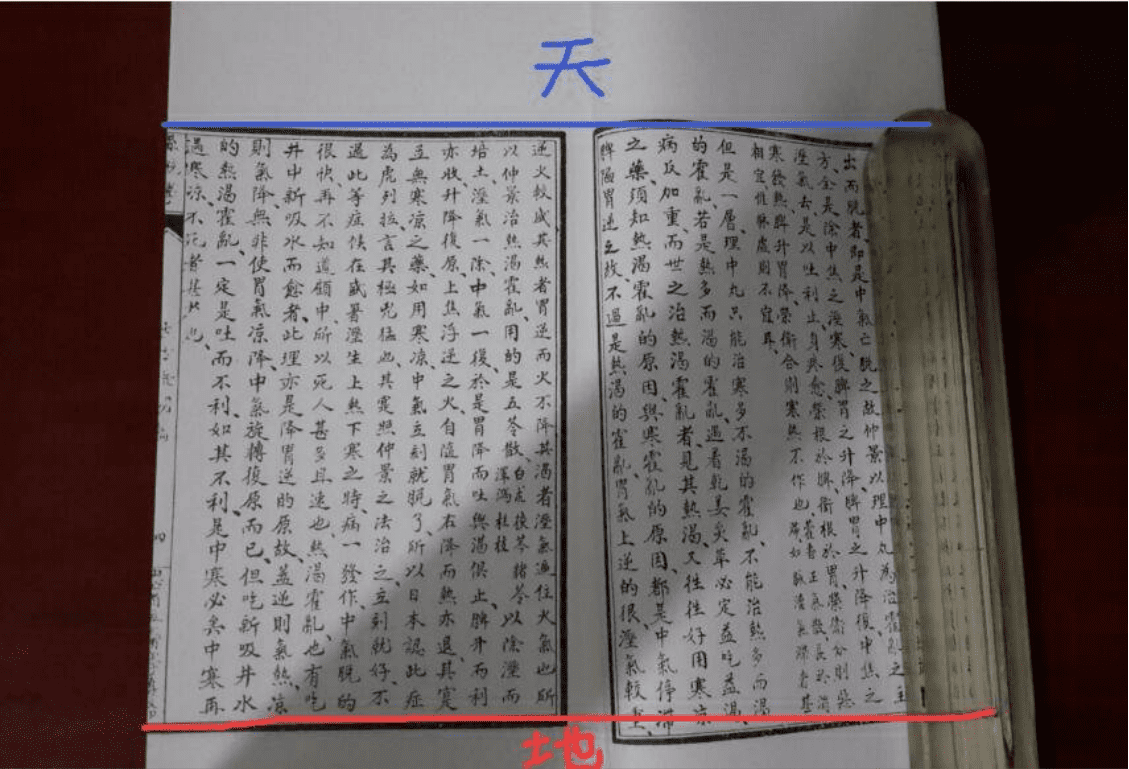 天
出而脫者、即是中氣亡脫之故、仲景以理中丸為治霍亂之主
方、全是除中焦之溼寒、復脾胃之升降、脾胃之升降復、中焦之
溼氣去、是以吐利止、身疼愈、榮根於脾、衛根於胃、榮衛分則惡
寒發熱、脾升胃降、榮衛合則寒熱不作也、霍者正氣散
相宜、惟脈虛則不宜耳、
但是一層、理中丸只能治寒多不渴的霍亂、不能治熱多而渴
的霍亂、若是熱多而渴的霍亂、遇着乾姜炙草必定益吃益渴、
病反加重、而世之治熱渴霍亂者、見其熱渴、又往往好用寒涼
之藥、須知熱渴霍亂的原因、與寒霍亂的原因、都是中氣停滯
脾陷胃逆之故、不過是熱渴的霍亂、胃氣上逆的很、溼氣較重、
逆火較盛、其熱者胃逆而火不降、其渴者溼氣逼住火氣也、所
以仲景治熱渴霍亂、用的是五苓散、白朮茯苓豬苓澤瀉桂枝以除溼而
培土、溼氣一除、中氣一復、於是胃降而吐與渴俱止、脾升而利
亦收、升降復原、上焦浮逆之火、自隨胃氣右降而熱亦退、其實
並無寒涼之藥、如用寒涼、中氣立刻就脫了、所以日本認此症
為虎列拉、言其極兇猛也、其實照仲景之法治之、立刻就好、不
過此等症候、在盛暑溼生上熱下寒之時、病一發作、中氣脫的
很快、再不知道顧中、所以死人甚多且速也、熱渴霍亂、也有吃
井中新吸水而愈者、此理亦是降胃逆的原故、蓋逆則氣熱、涼
則氣降、無非使胃氣涼降、中氣旋轉復原而已、但吃新吸井水
的熱渴霍亂、一定是吐而不利、如其不利、是中寒必矣、中寒再
遇寒涼、不死者甚少也、
四
地